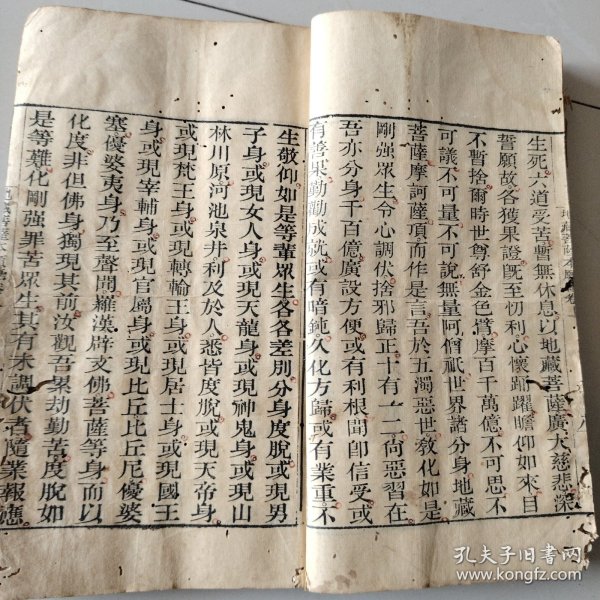 生死六道受苦暫無休息以地藏菩薩廣大慈悲深
誓願故各獲果證既至忉利心懷踊躍瞻仰如來目
不暫捨爾時世尊舒金色臂摩百千萬億不可思不
可議不可量不可說無量阿僧祇世界諸分身地藏
菩薩摩訶薩頂而作是言吾於五濁惡世教化如是
剛強眾生令心調伏捨邪歸正十有一二尚惡習在
吾亦分身千百億廣設方便或有利根聞即信受或
有善果勤勸成就或有暗鈍久化方歸或有業重不
生敬仰如是等輩眾生各各差別分身度脫或現男
子身或現女人身或現天龍身或現神鬼身或現山
林川原河池泉井利及於人悉皆度脫或現天帝身
或現梵王身或現轉輪王身或現居士身或現國王
身或現宰輔身或現官屬身或現比丘比丘尼優婆
塞優婆夷身乃至聲聞羅漢辟支佛菩薩等身而以
化度非但佛身獨現其前汝觀吾累劫勤苦度脫如
是等難化剛強罪苦眾生其有未調伏者隨業報應
孔夫子旧书网
www.kongfz.com